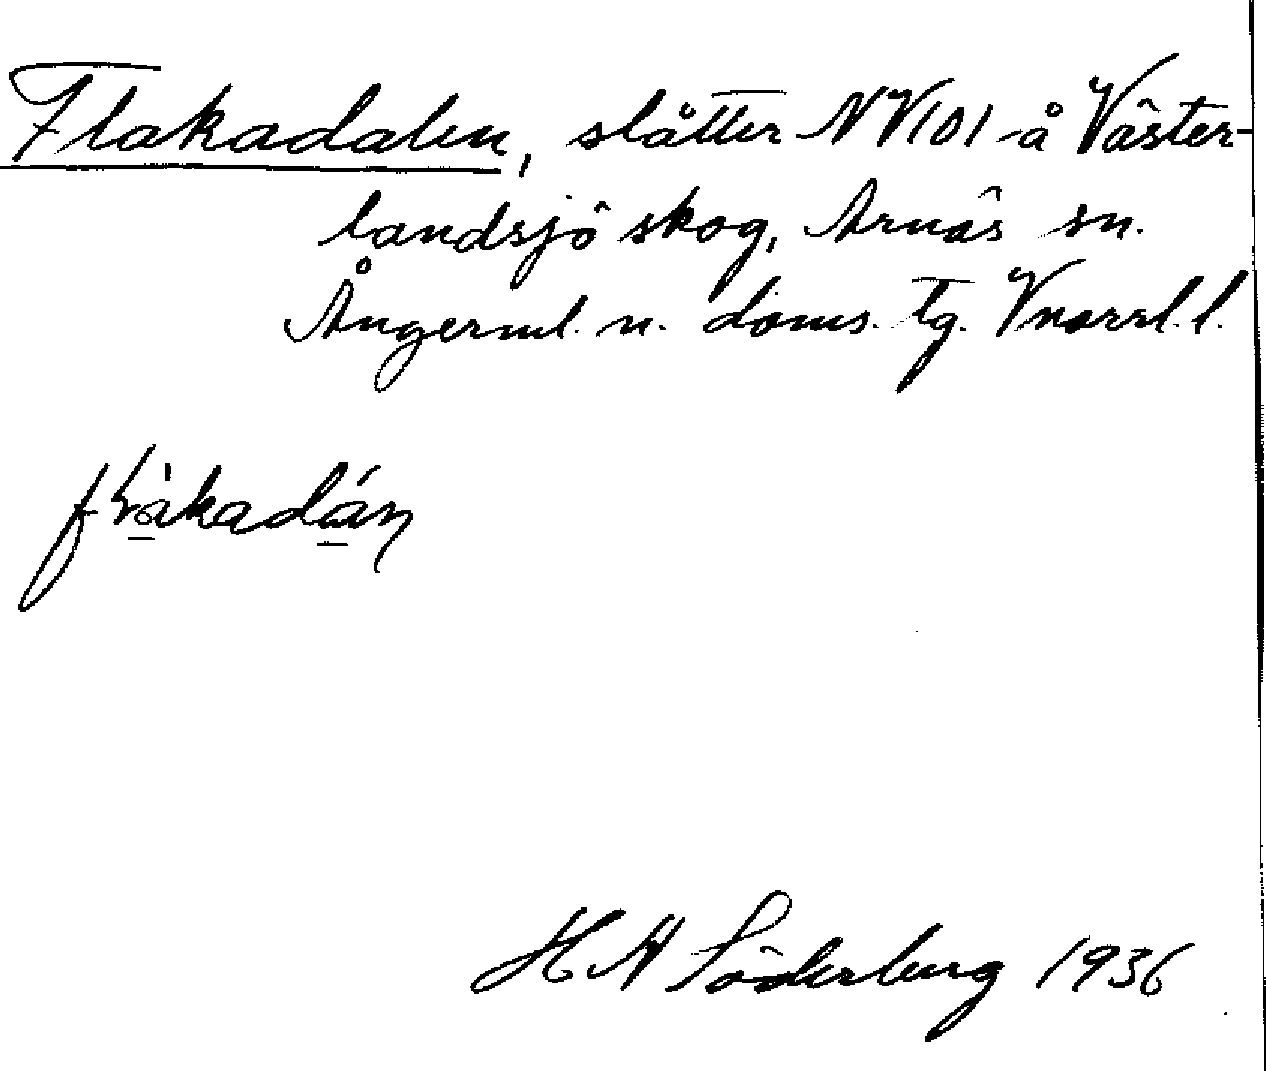 Flakadalen, slåtter NV101 å Väster-
landsjö skog, Arnäs sn.
Ångerml. n. doms. tg. Vnorrl. l.
H A Söderberg 1936